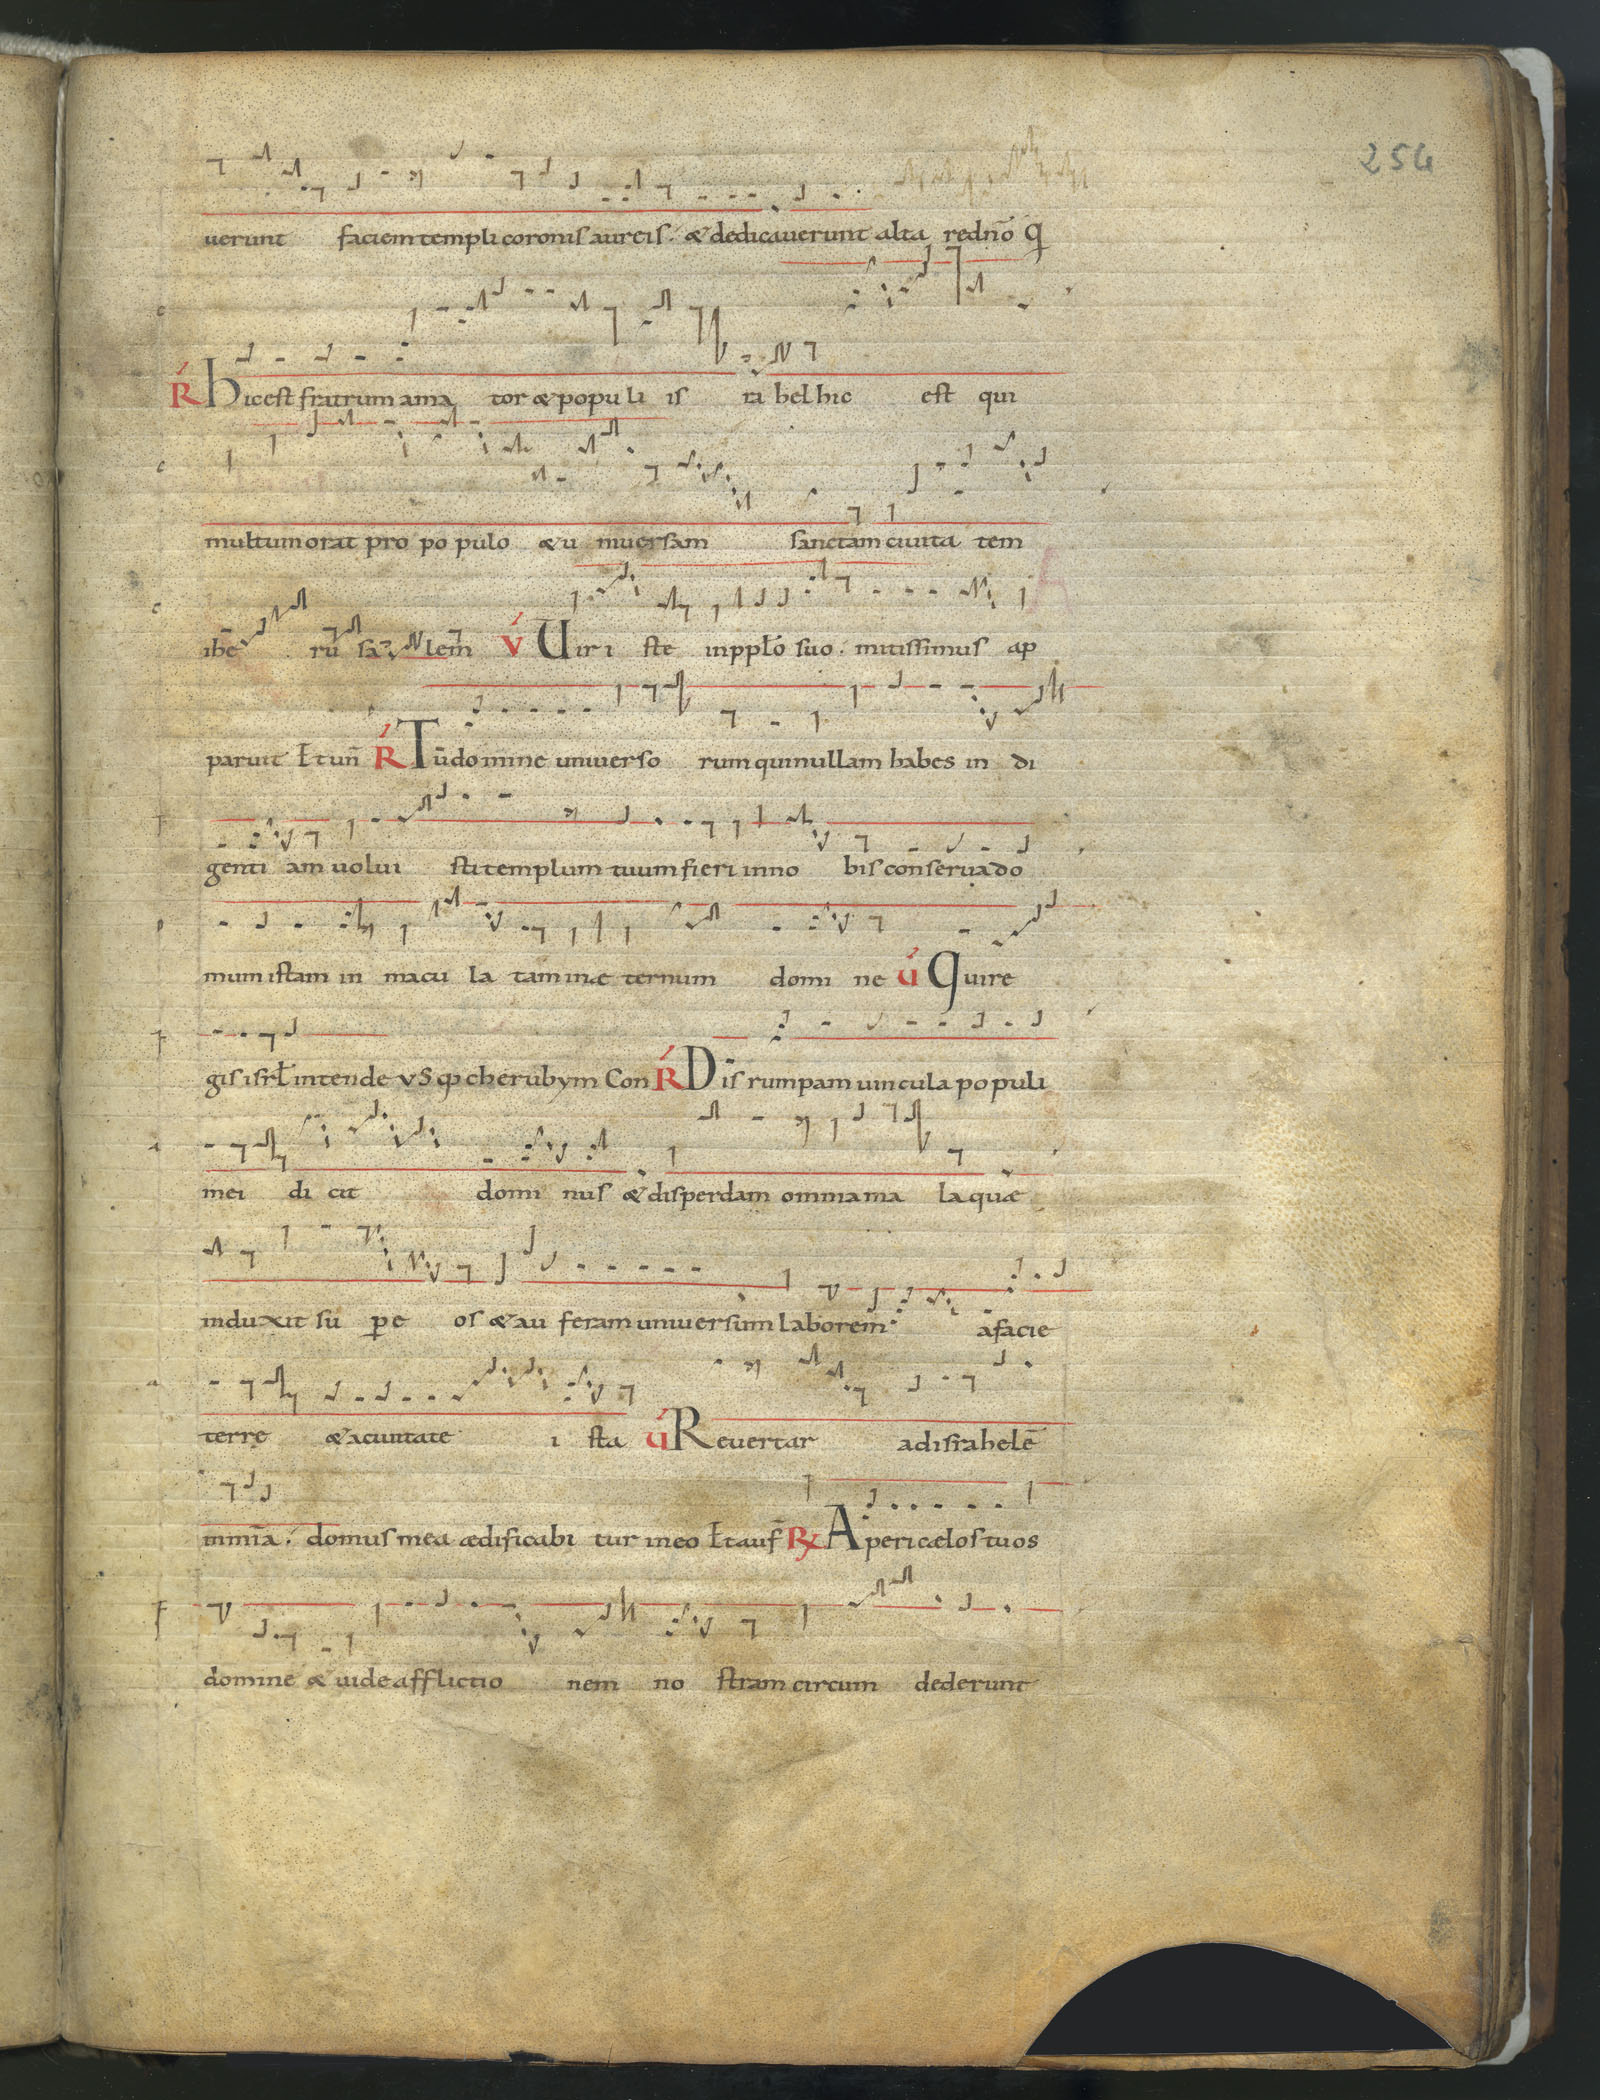 254
uerunt faciem templi coronis aureis. & dedicauerunt alta rednō q
R hic est fratrum ama tor & popu li is ra hel hic est qui
multum orat pro po pulo & u niuersam sanctam ciuita tem
ihe ru sa lem V Uir i ste inpplo suo. mitissimus ap
paruit Et un R Tu domine uniuerso rum qui nullam habes in di
genti am uolui sti templum tuum fieri inno bis conserua do
mum istam in macu la tam in æ ternum domi ne V Qui re
gis isrl intende vsq cherubym Con R Dis rumpam uincula populi
mei di cit domi nus & disperdam omnia ma la quæ
induxit su pe os & au feram uniuersum laborem a facie
terre & a ciuitate i sta V Reuertar ad israhel ē
mnia. domus mea ædificabi tur in eo Et auf R Aperi cælos tuos
domine & uide afflictio nem no stram circum dederunt